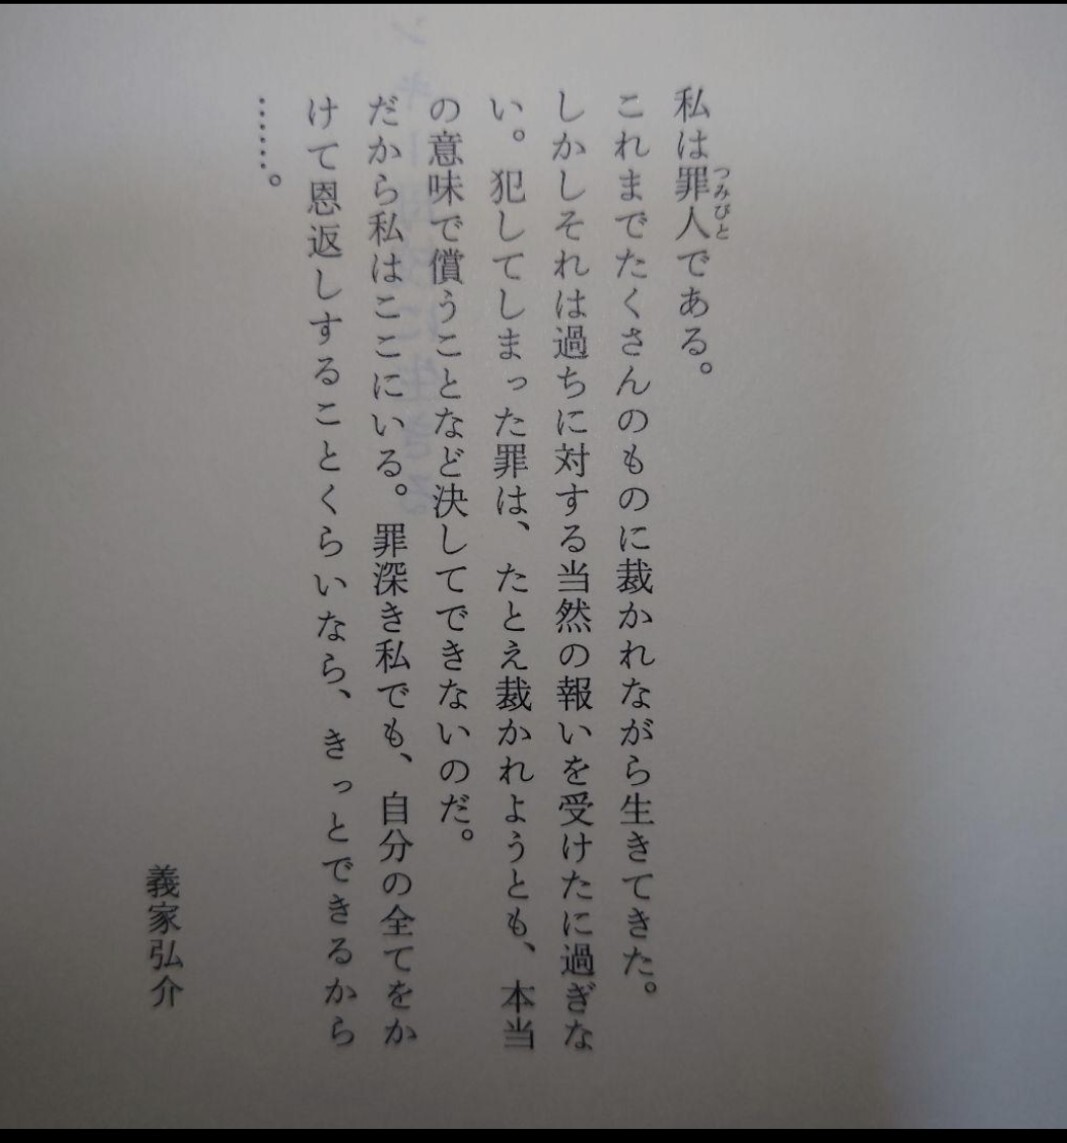 私は罪人である。
つみびと
これまでたくさんのものに裁かれながら生きてきた。
しかしそれは過ちに対する当然の報いを受けたに過ぎな
い。犯してしまった罪は、たとえ裁かれようとも、本当
の意味で償うことなど決してできないのだ。
だから私はここにいる。罪深き私でも、自分の全てをか
けて恩返しすることくらいなら、きっとできるから
……。
義家弘介